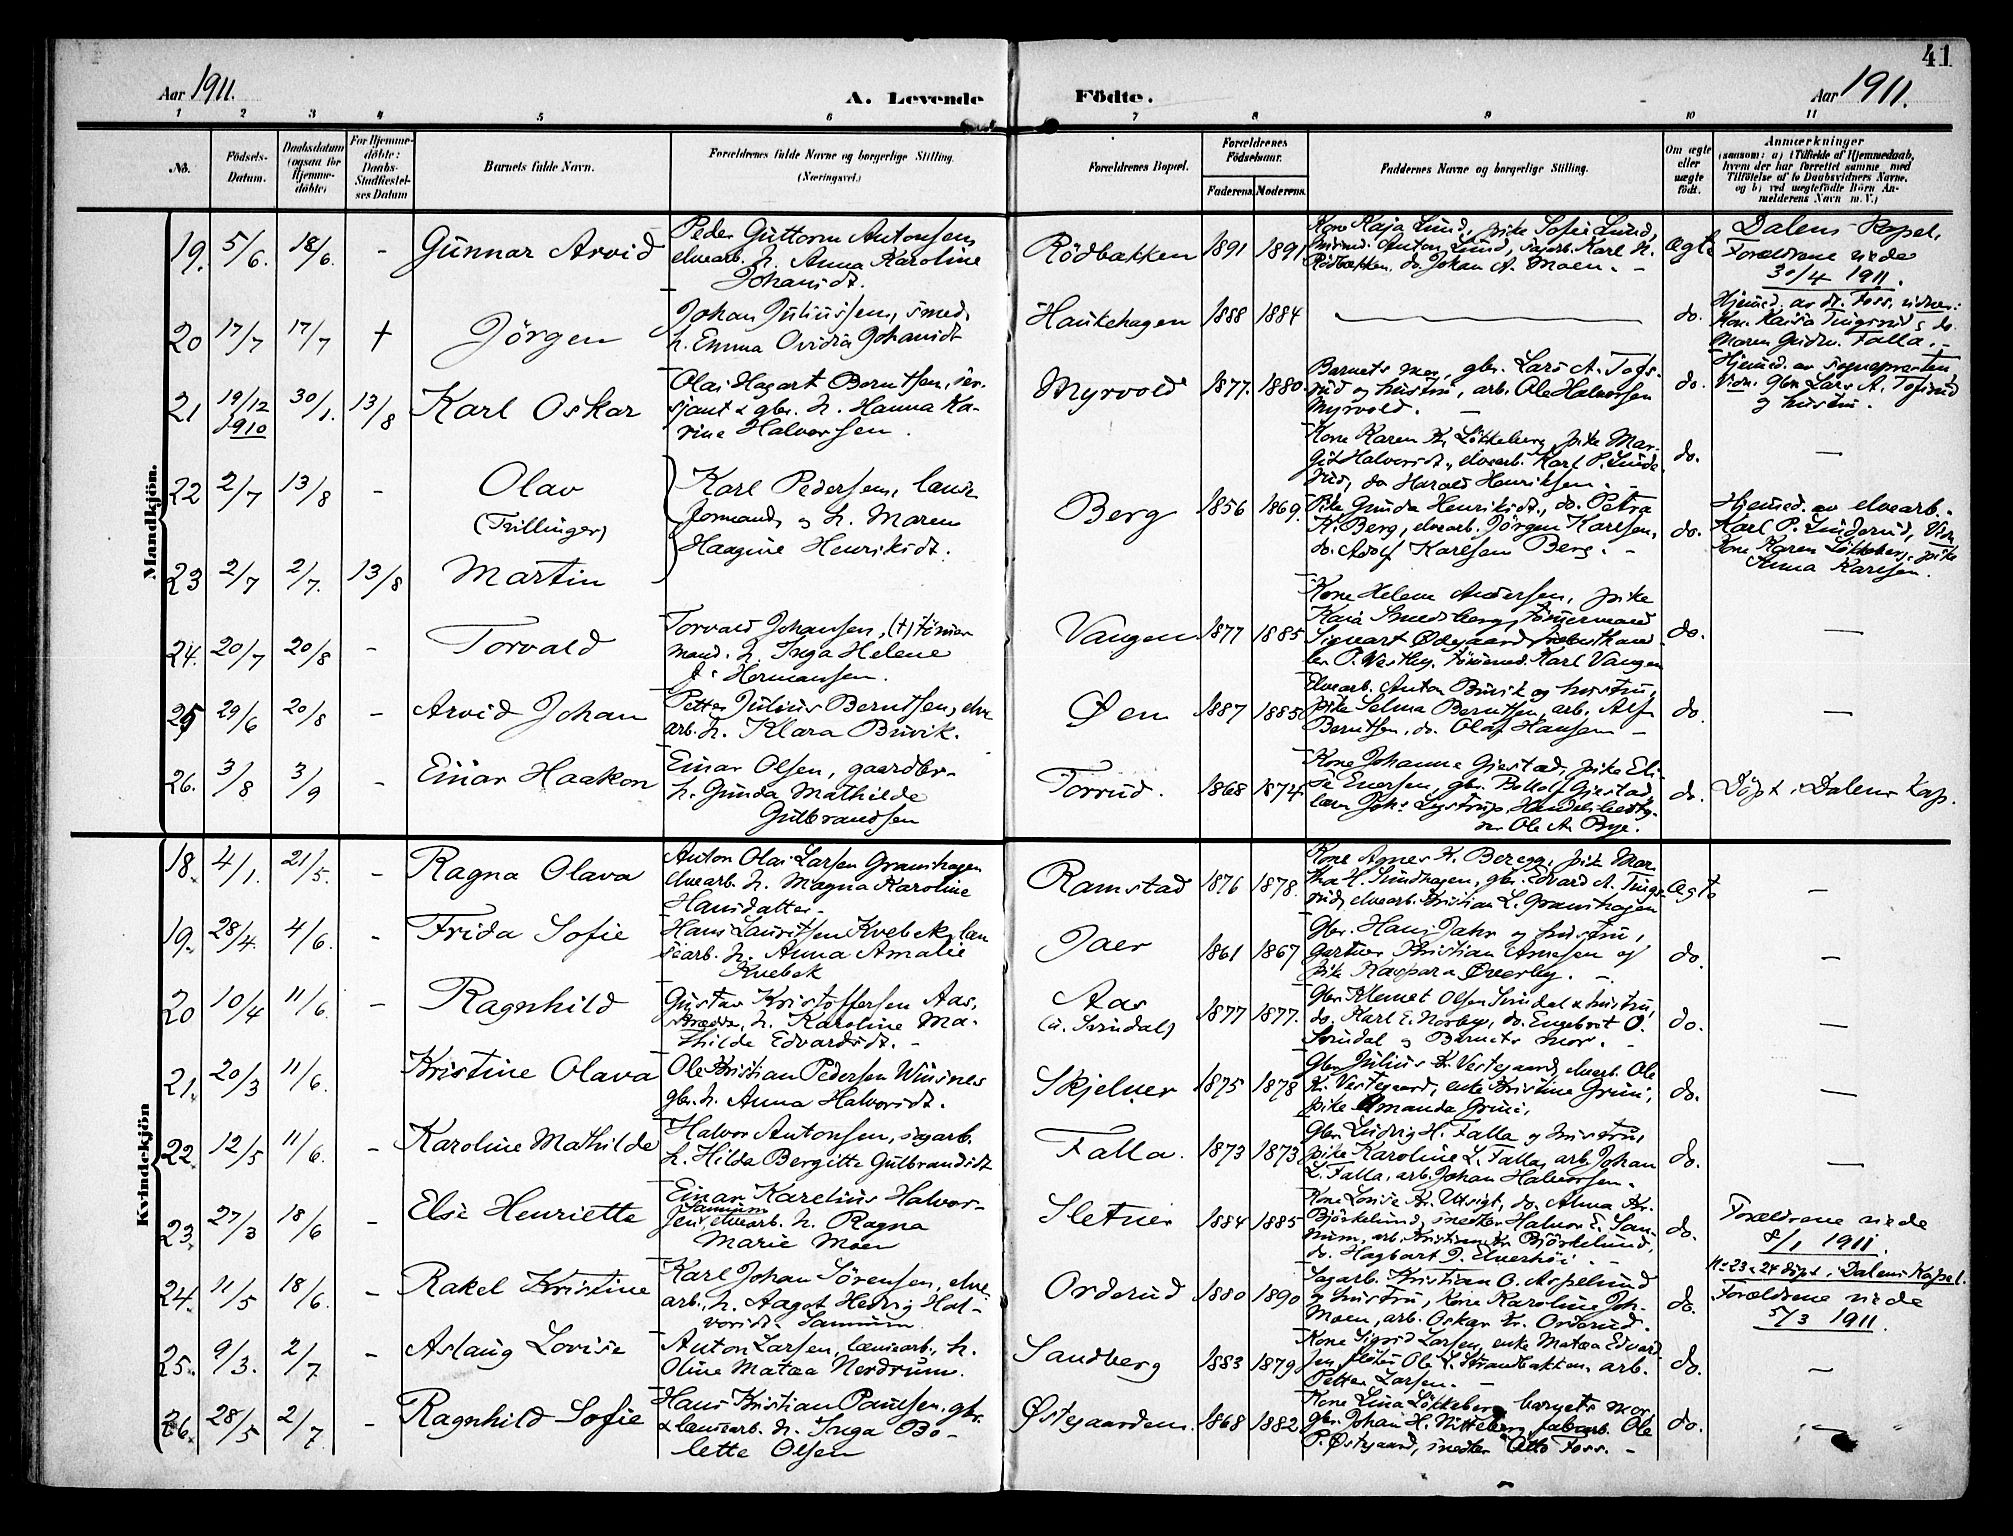 41
Aar 1911.
A. Levende Födte.
Aar 1911.
1 2 3 4 5 6 7 8 9 10 11
No.
Födsels-Datum.
Daabsdatum (ogsaa for Hjemmedöbte)
For Hjemmedöbte: Daabs-Stadfæstelses Datum
Barnets fulde Navn.
Forældrenes fulde Navne og borgerlige Stilling.
(Næringsvei.)
Forældrenes Bopæl.
Forældrenes Födselsaar.
Faderens. Moderens.
Faddernes Navne og borgerlige Stilling.
Om ægte eller uægte födt.
Anmærkninger
(saasom: a) i Tilfælde af Hjemmedaab, hvem der har forrettet samme, med Tilföielse af to Daabsvidners Navne, og b) ved uægtefödte Börn Anmelderens Navn m. V.)
Mandkjön.
19. 5/6. 18/6. - Gunnar Arvid
Peder Guttorm Antonsen,
elvearb. h. Anna Karoline
Johansdt.
Rödbakken 1891 1891
Kone Kaja Lund, pike Sofie Lund,
Anton Lund, sagarb. Karl
Rödbakken, do. Johan A. Moen. -
Ægte
Dalens Kapel,
Forældrene viede
30/4 1911.
20 17/7 17/7 + Jörgen
Johan Juliussen, smed,
h. Emma Ovidia Johansdt
Haukehagen 1888 1884
do.
Hjemmed. av dr. Foss. vidner:
Kone Kaisa Tingsrud & do.
Maren Falla. -
21 19/12 1910 30/1. 13/8 Karl Oskar
Olai Hagart Berntsen, ser-
sjant & gbr. h. Hanna Ka-
rine Halvorsen.
Myrvold 1877. 1880.
Barnets mor, gbr. Lars A. Tofs-
rud og hustru, arb. Ole Halvorsen
Myrvold. -
do.
Hjemmed. av sognepresten,
Vidn. gbr. Lars A. Tofsrud
og hustru.
22 2/7 13/8 - Olav
(Tvillinger)
Karl Pedersen, lænse-
formand, og h. Maren
Haagine Henriksdt.
Berg 1856 1869.
Kone Karen K. Lökkeberg, pike Mar-
git Halvorsdt., elvearb. Karl P. Linde-
rud, do Harald Henriksen. -
do.
-
23 2/7 2/7. 13/8 Martin
Pike Gunda Henriksdt., do. Petra
K. Berg, elvearb. Jörgen Karlsen,
do. Adolf Karlsen Berg. -
do.
Hjemmed. av elvearb.
Karl P. Linderud, Vidn.
Kone Karen Lökkeberg, pike
Anna Karlsen.
24. 20/7 20/8 - Torvald
Torvald Johansen, (+) tömmer-
mand. h. Inga Helene
Hermansen.
Vangen. 1877 1885
Kone Helene Andersen, pike
Kaia Smedsberg, tömmermand
Sigvart Østgaard,
P. Vestby, tömmerm. Karl Vangen
do. -
25 29/6 20/8 - Arvid Johan
Petter Julius Berntsen, elve-
arb. h. Klara Buvik.
Øen 1887 1885
Elvearb. Anton Buvik og hustru,
pike Selma Berntsen, arb. Alf
Berntsen, do. Olaf Hansen -
do. -
26. 3/8 3/9 - Einar Haakon
Einar Olsen, gaardbr.
h. Gunda Mathilde
Gulbrandsen
Torrud. 1868 1874
Kone Johanne Gjestad, pike Eli-
se Enersen, gbr. Gjestad,
Joh. Lystrup, Handelsbesty-
rer Ole A. Bye.
do. Döpt i Dalens Kap.
Kvindekjön
18. 4/1. 21/5. - Ragna Olava
Anton Olai Larsen Gramshagen
elvearb. h. Magna Karoline
Hansdatter.
Ramstad 1876 1878.
Kone Agnes K. Beregg, pike Mar-
tha H. Sundhagen, gbr. Edvard A. Tings-
rud, elvearb. Kristian L. Gramshagen
Ægte -
19. 28/4. 4/6. - Frida Sofie
Hans Lauritsen Kvebek, lan-
searb. h. Anna Amalie
Kvebek
Jaer 1861 1867
Gbr. Hans Jahr og hustru,
gartner Kristian Arnesen og
pike Kaspara Øverby. -
do. -
20 10/4 11/6. - Ragnhild
Gustav Kristoffersen Aas,
h. Karoline Ma-
thilde Edvardsdt. -
Aas
(u. Svindal) 1877 1877.
Gbr. Klemet Olsen Svindal & hustru,
do. Karl E. Norby, do. Engebret O.
Svindal og Barnets mor. -
do. -
21. 20/3 11/6. Kristine Olava
Ole Kristian Pedersen Winsnes
gbr. h. Anna Halvorsdt.
Skjelver 1875 1878
Gbr. Julius K. Vestgaard, elvearb. Ole
K. Vestgaard, enke Kristine Gruni,
pike Amanda Gruni,
do. -
22. 12/5 11/6. - Karoline Mathilde
Halvor Antonsen, sagarb.
h. Hilda Bergitte Gulbrandsdt
Falla. 1873 1873
Gbr. Ludvig H. Falla og hustru,
pike Karoline L. Falla, arb. Johan
L. Falla, arb. Johan Halvorsen. -
do. -
23. 27/3 18/6 - Else Henriette
Einar Karelius Halvor-
sen Sannum elvearb. h. Ragna
Marie Moen
Sletner 1884 1885
Kone Lovise Kr. Utsigt, do. Alma Kr.
Björkelund, snedker Halvor E. San-
num, arb. Kristian Kr. Björkelund,
do. Hagbart J. Elverhöi. -
do.
Forældrene viede
8/1 1911.
No 23 & 24 döpt i Dalens Kapel.
24. 11/5 18/6. - Rakel Kristine
Karl Johan Sörensen, elve-
arb., h. Aagot Hedvig Hal-
vorsdt. Sannum.
Orderud 1880 1890
Sagarb. Kristian O. Aspelund
og hustru, Kone Karoline Joh-
Moen, arb. Oskar Kr. Orderud. -
do.
Forældrene viede
5/3 1911.
25. 9/3. 2/7 - Aslaug Lovise
Anton Larsen, lænsearb., h.
Oline Matæa Nordrum.
Sandberg 1883 1879
Kone Sigrid Larsen, enke Matæa Edvard-
sen, flöter Ole L. Strandbakken, arb.
Petter Larsen. -
do. -
26. 28/5 2/7. - Ragnhild Sofie
Hans Kristian Paulsen, gbr.
& lænsearb. h. Inga Bo-
lette Olsen
Østgaarden. 1868 1882.
Kone Lina Lökkeberg, barnets mor,
gbr. Johan H. Nitteberg, fabarb. Ole
P. Østgaard, snedker Otto Foss. -
do. -